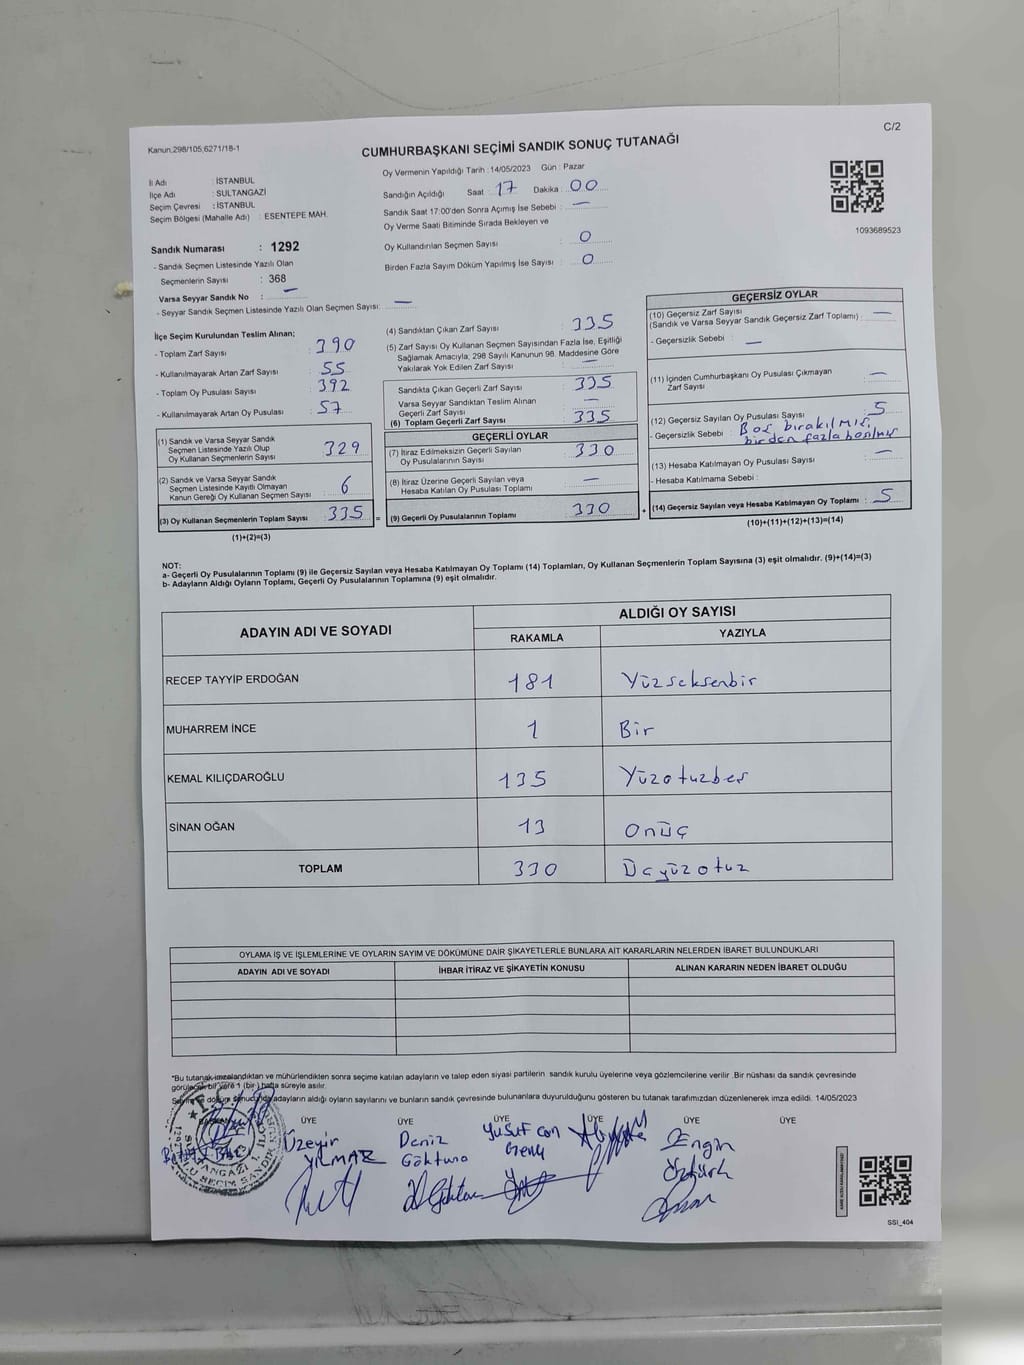 C/2
Kanun,298/105,6271/18-1
CUMHURBAŞKANI SEÇİMİ SANDIK SONUÇ TUTANAĞI
Oy Vermenin Yapıldığı Tarih : 14/05/2023 Gün : Pazar
İl Adı : İSTANBUL
İlçe Adı : SULTANGAZİ
Seçim Çevresi : İSTANBUL
Seçim Bölgesi (Mahalle Adı) : ESENTEPE MAH.
Sandığın Açıldığı Saat : 17 Dakika : 00
Sandık Saat 17:00'den Sonra Açımış İse Sebebi : —
Oy Verme Saati Bitiminde Sırada Bekleyen ve
Oy Kullandırılan Seçmen Sayısı : 0
Birden Fazla Sayım Döküm Yapılmış İse Sayısı : 0
1093689523
Sandık Numarası : 1292
- Sandık Seçmen Listesinde Yazılı Olan
Seçmenlerin Sayısı : 368
Varsa Seyyar Sandık No : —
- Seyyar Sandık Seçmen Listesinde Yazılı Olan Seçmen Sayısı: —
İlçe Seçim Kurulundan Teslim Alınan;
- Toplam Zarf Sayısı : 390
- Kullanılmayarak Artan Zarf Sayısı : 55
- Toplam Oy Pusulası Sayısı : 392
- Kullanılmayarak Artan Oy Pusulası : 57
(1) Sandık ve Varsa Seyyar Sandık
Seçmen Listesinde Yazılı Olup
Oy Kullanan Seçmenlerin Sayısı : 329
(2) Sandık ve Varsa Seyyar Sandık
Seçmen Listesinde Kayıtlı Olmayan
Kanun Gereği Oy Kullanan Seçmen Sayısı : 6
(3) Oy Kullanan Seçmenlerin Toplam Sayısı : 335 =
(1)+(2)=(3)
(4) Sandıktan Çıkan Zarf Sayısı : 335
(5) Zarf Sayısı Oy Kullanan Seçmen Sayısından Fazla İse, Eşitliği
Sağlamak Amacıyla; 298 Sayılı Kanunun 98. Maddesine Göre
Yakılarak Yok Edilen Zarf Sayısı : —
Sandıkta Çıkan Geçerli Zarf Sayısı : 335
Varsa Seyyar Sandıktan Teslim Alınan
Geçerli Zarf Sayısı : —
(6) Toplam Geçerli Zarf Sayısı : 335
GEÇERLİ OYLAR
(7) İtiraz Edilmeksizin Geçerli Sayılan
Oy Pusulalarının Sayısı : 330
(8) İtiraz Üzerine Geçerli Sayılan veya
Hesaba Katılan Oy Pusulası Toplamı : —
(9) Geçerli Oy Pusulalarının Toplamı : 330 +
GEÇERSİZ OYLAR
(10) Geçersiz Zarf Sayısı
(Sandık ve Varsa Seyyar Sandık Geçersiz Zarf Toplamı) : —
- Geçersizlik Sebebi : —
(11) İçinden Cumhurbaşkanı Oy Pusulası Çıkmayan
Zarf Sayısı : —
(12) Geçersiz Sayılan Oy Pusulası Sayısı : 5
- Geçersizlik Sebebi : Boş bırakılmış,
birden fazla basılmış
(13) Hesaba Katılmayan Oy Pusulası Sayısı : —
- Hesaba Katılmama Sebebi :
(14) Geçersiz Sayılan veya Hesaba Katılmayan Oy Toplamı : 5
(10)+(11)+(12)+(13)=(14)
NOT:
a- Geçerli Oy Pusulalarının Toplamı (9) ile Geçersiz Sayılan veya Hesaba Katılmayan Oy Toplamı (14) Toplamları, Oy Kullanan Seçmenlerin Toplam Sayısına (3) eşit olmalıdır. (9)+(14)=(3)
b- Adayların Aldığı Oyların Toplamı, Geçerli Oy Pusulalarının Toplamına (9) eşit olmalıdır.
ADAYIN ADI VE SOYADI
ALDIĞI OY SAYISI
RAKAMLA YAZIYLA
RECEP TAYYİP ERDOĞAN 181 Yüzseksenbir
MUHARREM İNCE 1 Bir
KEMAL KILIÇDAROĞLU 135 Yüzotuzbeş
SİNAN OĞAN 13 Onüç
TOPLAM 330 Üçyüzotuz
OYLAMA İŞ VE İŞLEMLERİNE VE OYLARIN SAYIM VE DÖKÜMÜNE DAİR ŞİKAYETLERLE BUNLARA AİT KARARLARIN NELERDEN İBARET BULUNDUKLARI
ADAYIN ADI VE SOYADI İHBAR İTİRAZ VE ŞİKAYETİN KONUSU ALINAN KARARIN NEDEN İBARET OLDUĞU
*Bu tutanak imzalandıktan ve mühürlendikten sonra seçime katılan adayların ve talep eden siyasi partilerin sandık kurulu üyelerine veya gözlemcilerine verilir .Bir nüshası da sandık çevresinde
görülecek bir yere 1 (bir ) hafta süreyle asılır.
döküm sonucunda adayların aldığı oyların sayılarını ve bunların sandık çevresinde bulunanlara duyurulduğunu gösteren bu tutanak tarafımızdan düzenlenerek imza edildi. 14/05/2023
BAŞKAN ÜYE ÜYE ÜYE ÜYE ÜYE ÜYE
Üzeyir YILMAZ
Deniz Göktuna
Yusuf Can Genç
Engin Öztürk
SSI_404